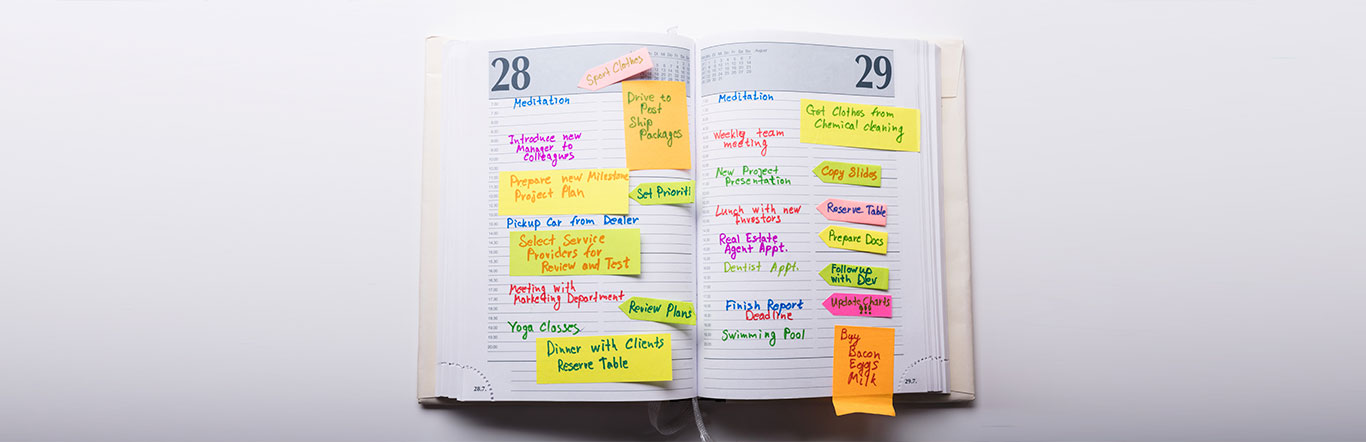 28
Sport Clothes
Meditation
Drive to
Post
Ship
Packages
Introduce new
Manager to
Colleagues
Prepare new Milestone
Project Plan
Set Prioriti
Pickup Car from Dealer
Select Service
Providers for
Review and Test
Meeting with
Marketing Department
Review Plans
Yoga Classes
Dinner with Clients
Reserve Table
28.7.
August
29
Meditation
Get Clothes from
Chemical cleaning
Weekly team
meeting
New Project
Presentation
Copy Slides
Lunch with new
Investors
Reserve Table
Real Estate
Agent Appt.
Prepare Docs
Dentist Appt.
Follow up
with Dev
Finish Report
Deadline
Update Charts
!!!
Swimming Pool
Buy
Bacon
Eggs
Milk
29.7.